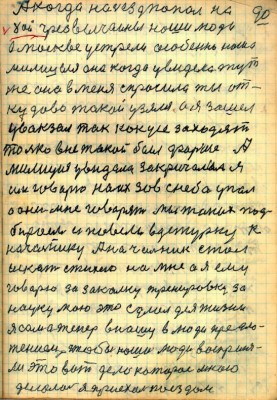 А когда наезд попал на 90
бой чрезвычайны наши люди
в москве устрели особенно наша
милиция она когда увидела тут
же она в меня спросила ты от-
куда такой узялся а я зашел
у вакзал так как уже заходят
толко в не такой был форме А
милиция увидала закричала я
им говарю на их зов с неба упал
а они мне говарят мы таких под-
бираем и повели в дежурку к
начатнику А начатник стал
искат стихию на мне а я ему
говарю за закалку тренировку за
науку мою это с умел для жизни
я сама тепер в нашу в люди предло-
жением чтобы наши люди восприня-
ли это вит дела каторае много
делолас я приехал поездом